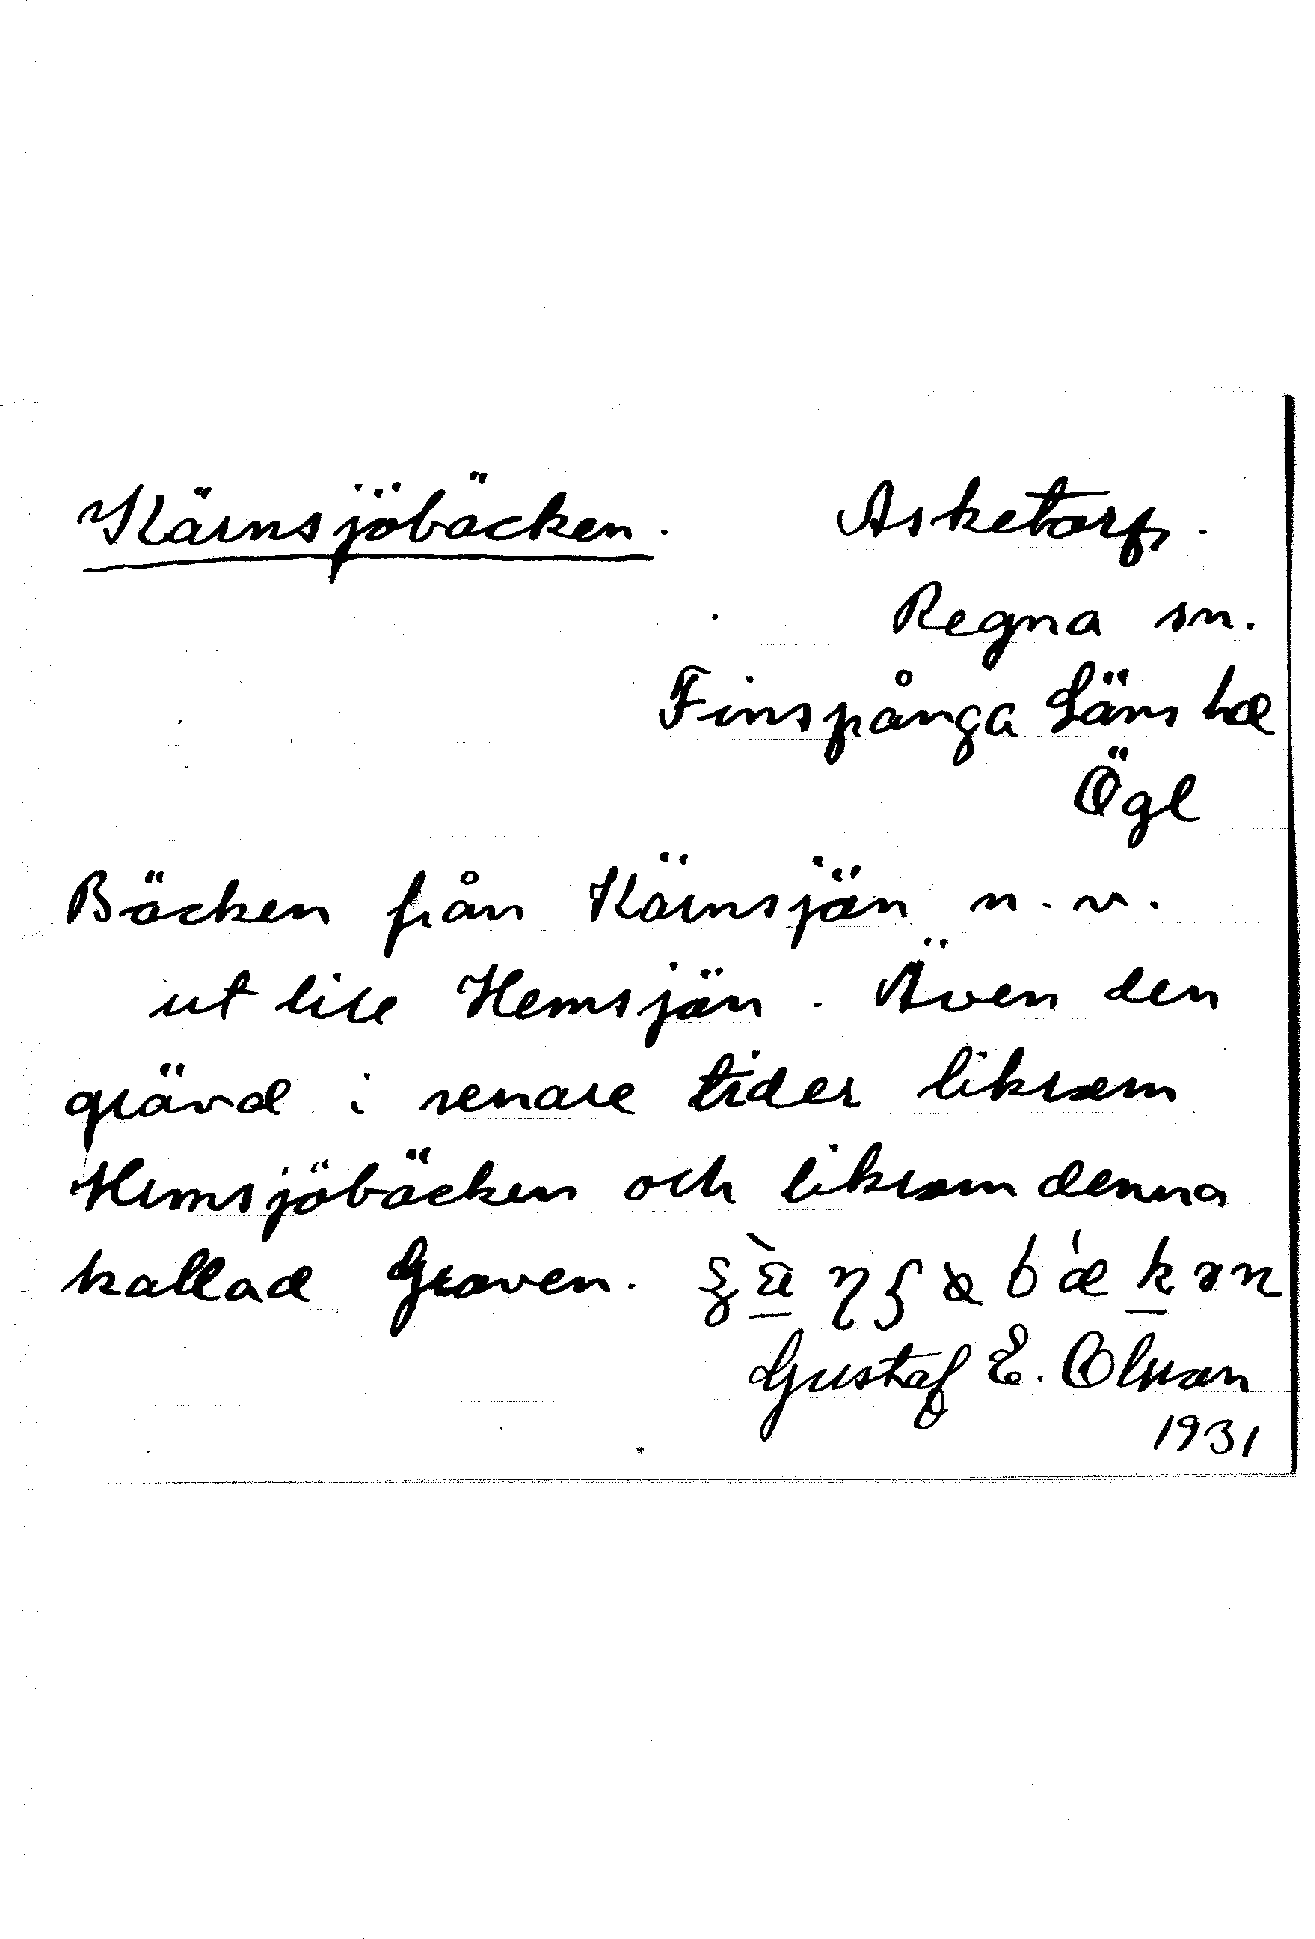 Kärnsjöbäcken. Asketorp.
Regna sn.
Finspånga Läns hd
Ögl
Bäcken från Kärnsjön n.v.
ut till Hemsjön. Även den
grävd i senare tider liksom
Hemsjöbäcken och liksom denna
kallad Graven.
Gustaf E. Olsson
1931